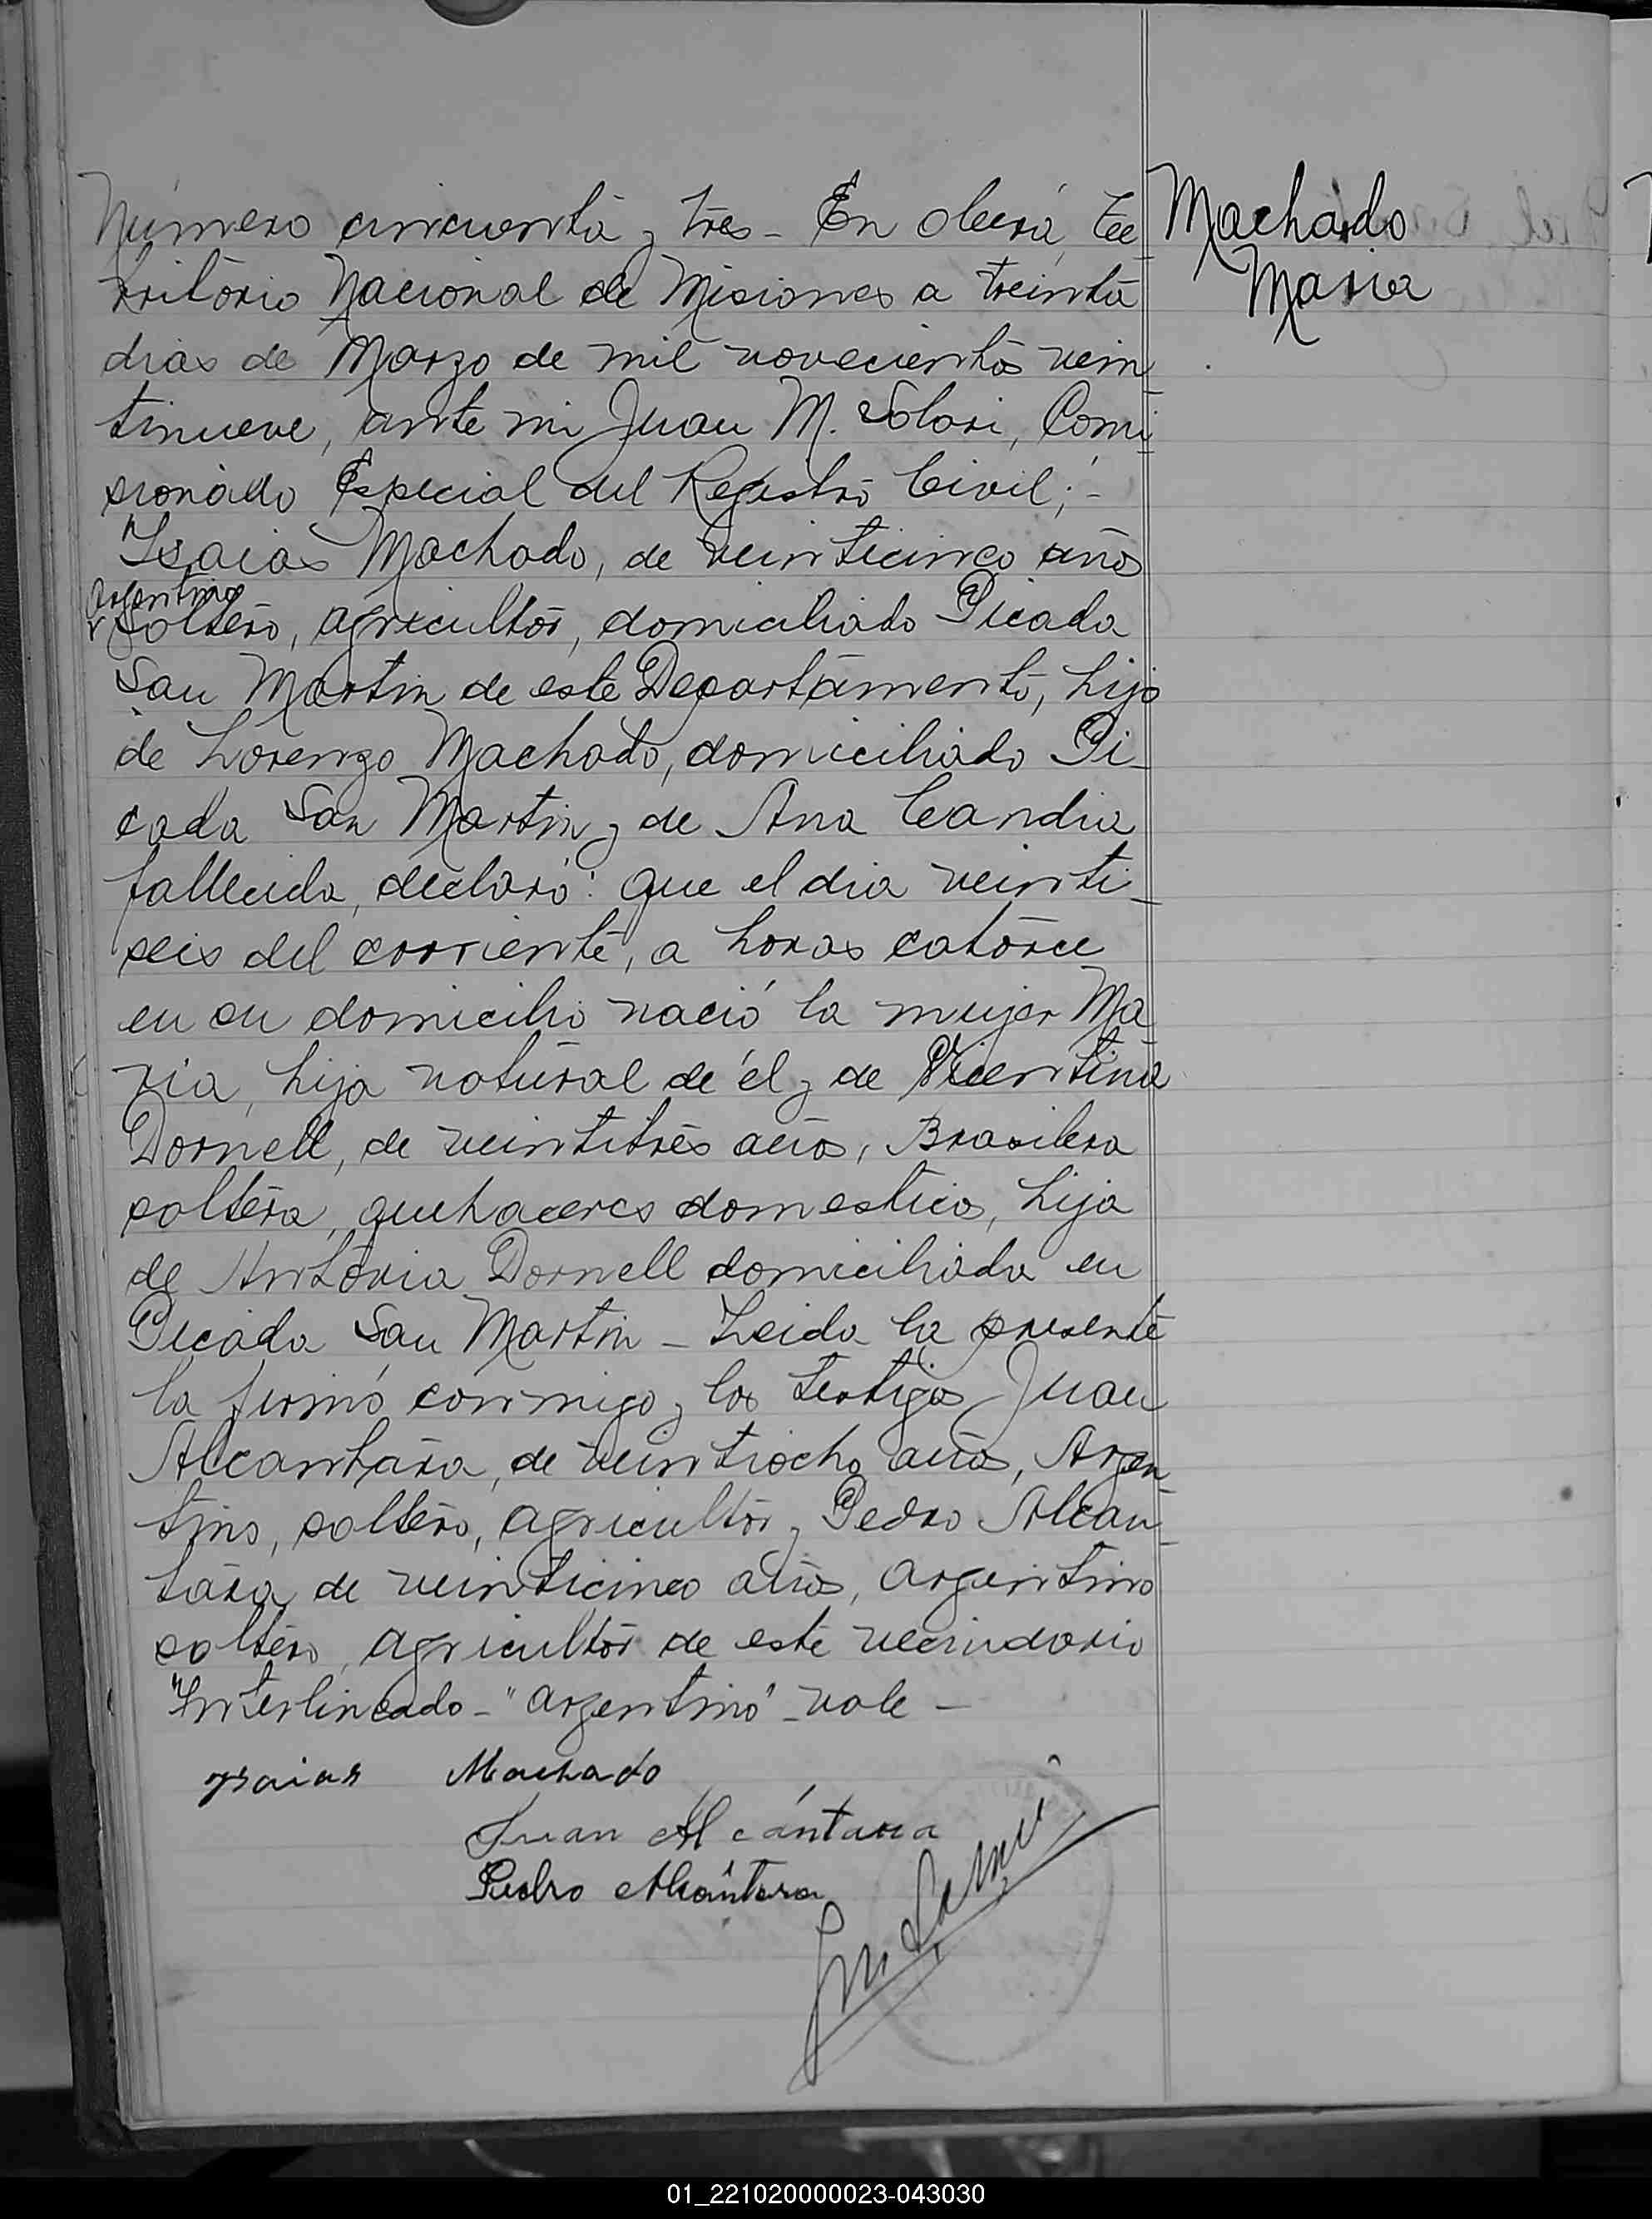 Número cincuenta y tres - En Oberá, Te
Machado
Maria
rritorio Nacional de Misiones a treinta
dias de Marzo de mil novecientos vein
tinueve, ante mi Juan M. Solari, Comi
sionado Especial del Registro Civil; -
Isaias Machado, de veinticinco años
argentino
soltero, agricultor, domiciliado Picada
San Martin de este Departamento, hijo
de Lorenzo Machado, domiciliado Pi-
cada San Martin y de Ana Candia
fallecida, declaró: que el dia veinti-
seis del corriente, a horas catorce
en su domicilio nació la mujer Ma
ria, hija natural de él y de Vicentina
Dornell, de veintitres años, Brasilera
soltera, quehaceres domesticos, hija
de Antonia Dornell domiciliada en
Picada San Martin - Leida la presente
la firmó conmigo y los testigos Juan
Alcantara, de veintiocho años, Argen
tino, soltero, agricultor y Pedro Alcan-
tara de veinticinco años, argentino
soltero, agricultor de este vecindario
"Interlineado - "argentino" - vale -
ysaias Machado
Juan Alcántara
Pedro Alcántara
01_221020000023-043030